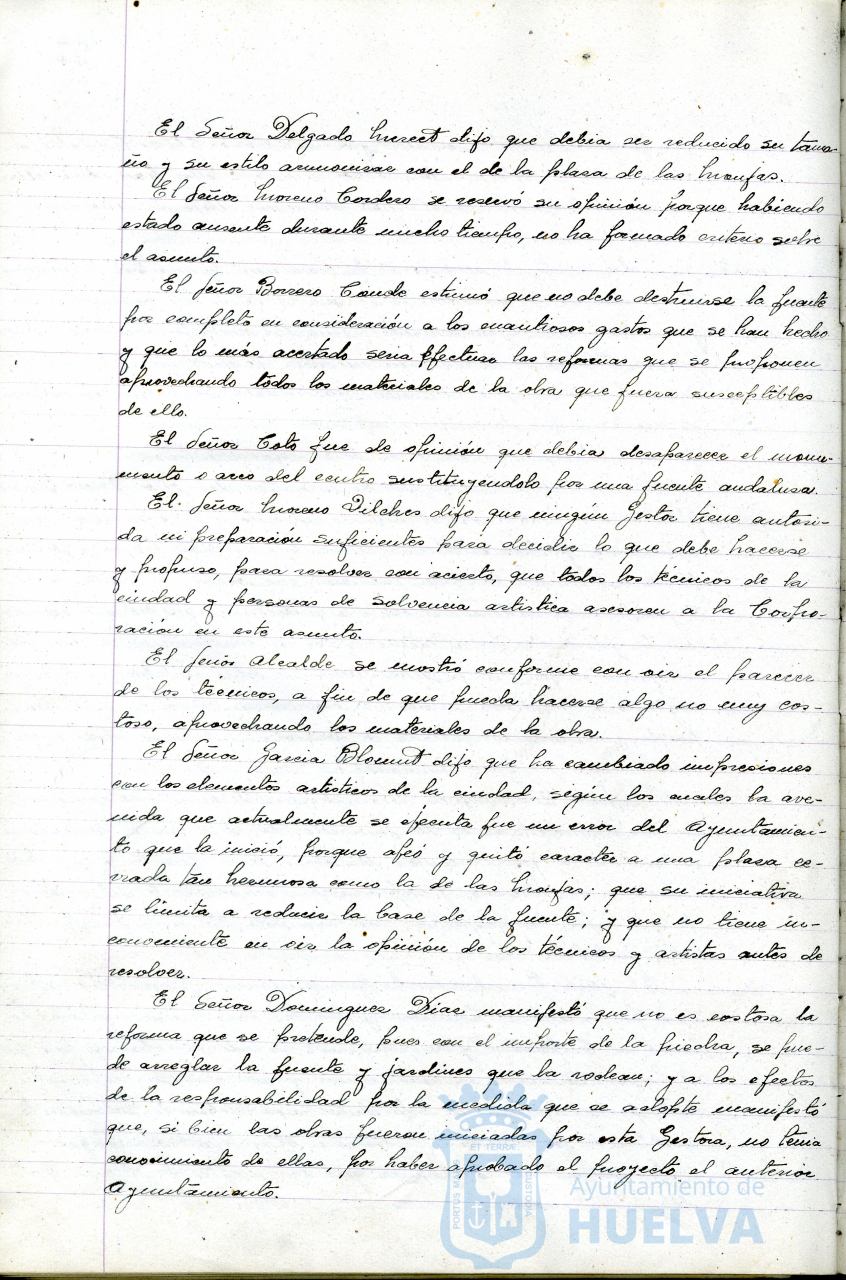 El Señor Delgado dijo que debia ser reducido su tama-
ño y su estilo armonizar con el de la plaza de las Monjas.
El Señor Moreno Cordero se reservó su opinión porque habiendo
estado ausente durante mucho tiempo, no ha formado criterio sobre
el asunto.
El Señor Borrero Conde estimó que no debe destruirse la fuente
por completo en consideración a los cuantiosos gastos que se han hecho
y que lo más acertado seria efectuar las reformas que se proponen
aprovechando todos los materiales de la obra que fuera susceptibles
de ello.
El Señor Coto fue de opinión que debia desaparecer el monu-
mento o arco del centro sustituyendolo por una fuente andaluza.
El Señor Moreno Pilches dijo que ningún Gestor tiene autori-
da ni preparación suficientes para decidir lo que debe hacerse
y propuso, para resolver con acierto, que todos los técnicos de la
ciudad y personas de solvencia artistica asesoren a la Corpo-
ración en este asunto.
El Señor Alcalde se mostró conforme con oir el parecer
de los técnicos, a fin de que pueda hacerse algo no muy cos-
toso, aprovechando los materiales de la obra.
El Señor Garcia dijo que ha cambiado impresiones
con los elementos artisticos de la ciudad, según los cuales la ave-
nida que actualmente se ejecuta fue un error del Ayuntamien-
to que la inició, porque afeó y quitó caracter a una plaza ce-
rrada tan hermosa como la de las Monjas; que su iniciativa
se limita a reducir la base de la fuente; y que no tiene in-
conveniente en oir la opinión de los técnicos y artistas antes de
resolver.
El Señor Dominguez Diaz manifestó que no es costosa la
reforma que se pretende, pues con el importe de la piedra, se pue-
de arreglar la fuente y jardines que la rodean; y a los efectos
de la responsabilidad por la medida que se adopte manifestó
que, si bien las obras fueron iniciadas por esta Gestora, no tenia
conocimiento de ellas, por haber aprobado el proyecto el anterior
Ayuntamiento.
PORTUS ET TERRAE CUSTODIA
Ayuntamiento de
HUELVA